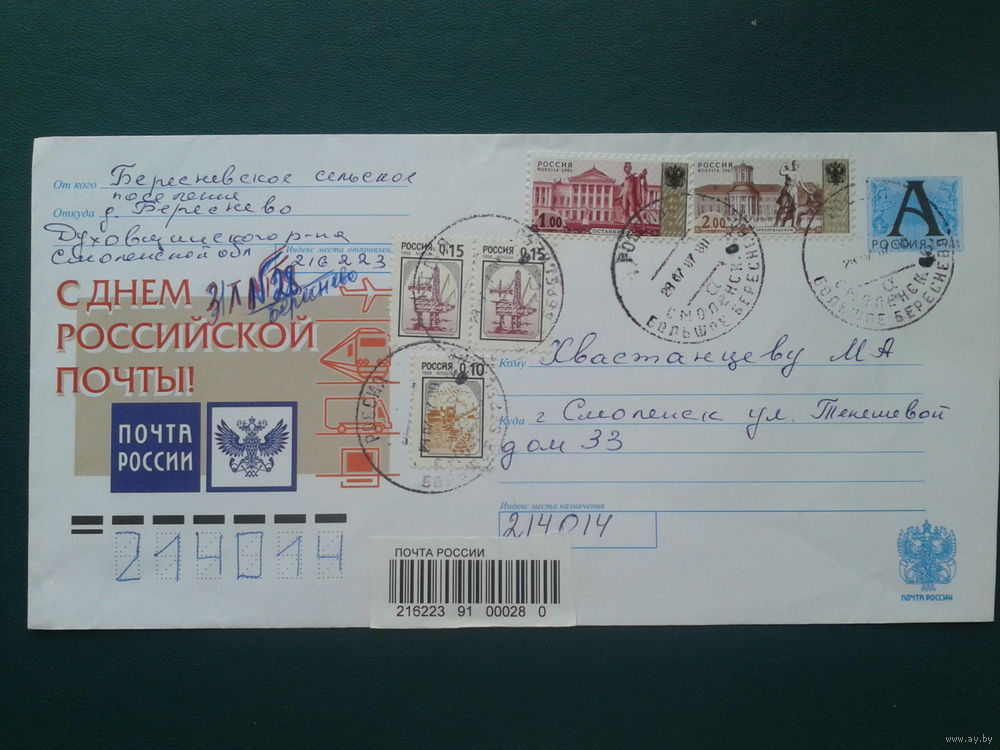 От кого Бересневское сельское
поселение
Откуда д. Береснево
Духовщинского р-на
Смоленской обл
Индекс места отправления
216223
З/П №28
береснево
С ДНЕМ
РОССИЙСКОЙ
ПОЧТЫ!
ПОЧТА
РОССИИ
РОССИЯ 0.15
1998
РОССИЯ 0.15
РОССИЯ 0.10
1998
РОССИЯ
ROSSIJA 2003
1.00
ОСТАНКИНО
РОССИЯ
ROSSIJA 2002
2.00
АРХАНГЕЛЬСКОЕ
А
РОССИЯ
РОССИЯ
СМОЛЕНСК
БОЛЬШОЕ БЕРЕСНЕВО
СМОЛЕНСК
БОЛЬШОЕ БЕРЕСНЕВО
РОССИЯ
Кому Хвастанцеву МА
Куда г Смоленск ул. Тенешевой
дом 33
Индекс места назначения
214014
214014
ПОЧТА РОССИИ
216223 91 00028 0
ПОЧТА РОССИИ
www.ay.by